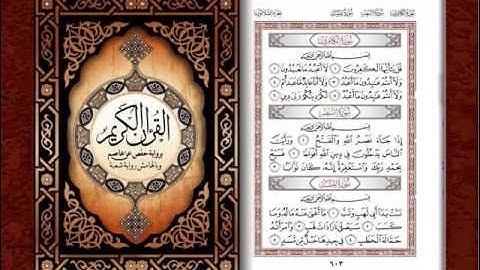 القرآن الكريم
برواية حفص عن عاصم
وبالهامش رواية شعبة
سُورَةُ الكَافِرُونَ
بِسْمِ اللَّهِ الرَّحْمَٰنِ الرَّحِيمِ
قُلْ يَٰٓأَيُّهَا ٱلْكَٰفِرُونَ ١ لَآ أَعْبُدُ مَا تَعْبُدُونَ ٢
وَلَآ أَنتُمْ عَٰبِدُونَ مَآ أَعْبُدُ ٣ وَلَآ أَنَا۠ عَابِدٌ مَّا عَبَدتُّمْ ٤
وَلَآ أَنتُمْ عَٰبِدُونَ مَآ أَعْبُدُ ٥ لَكُمْ دِينُكُمْ وَلِيَ دِينِ ٦
سُورَةُ النَّصْرِ
بِسْمِ اللَّهِ الرَّحْمَٰنِ الرَّحِيمِ
إِذَا جَآءَ نَصْرُ ٱللَّهِ وَٱلْفَتْحُ ١ وَرَأَيْتَ
ٱلنَّاسَ يَدْخُلُونَ فِي دِينِ ٱللَّهِ أَفْوَاجًا ٢ فَسَبِّحْ
بِحَمْدِ رَبِّكَ وَٱسْتَغْفِرْهُ إِنَّهُۥ كَانَ تَوَّابًۢا ٣
سُورَةُ المَسَدِ
بِسْمِ اللَّهِ الرَّحْمَٰنِ الرَّحِيمِ
تَبَّتْ يَدَآ أَبِي لَهَبٍ وَتَبَّ ١ مَآ أَغْنَىٰ عَنْهُ مَالُهُۥ وَمَا
كَسَبَ ٢ سَيَصْلَىٰ نَارًا ذَاتَ لَهَبٍ ٣ وَٱمْرَأَتُهُۥ
حَمَّالَةَ ٱلْحَطَبِ ٤ فِي جِيدِهَا حَبْلٌ مِّن مَّسَدٍۭ ٥
٦٠٣